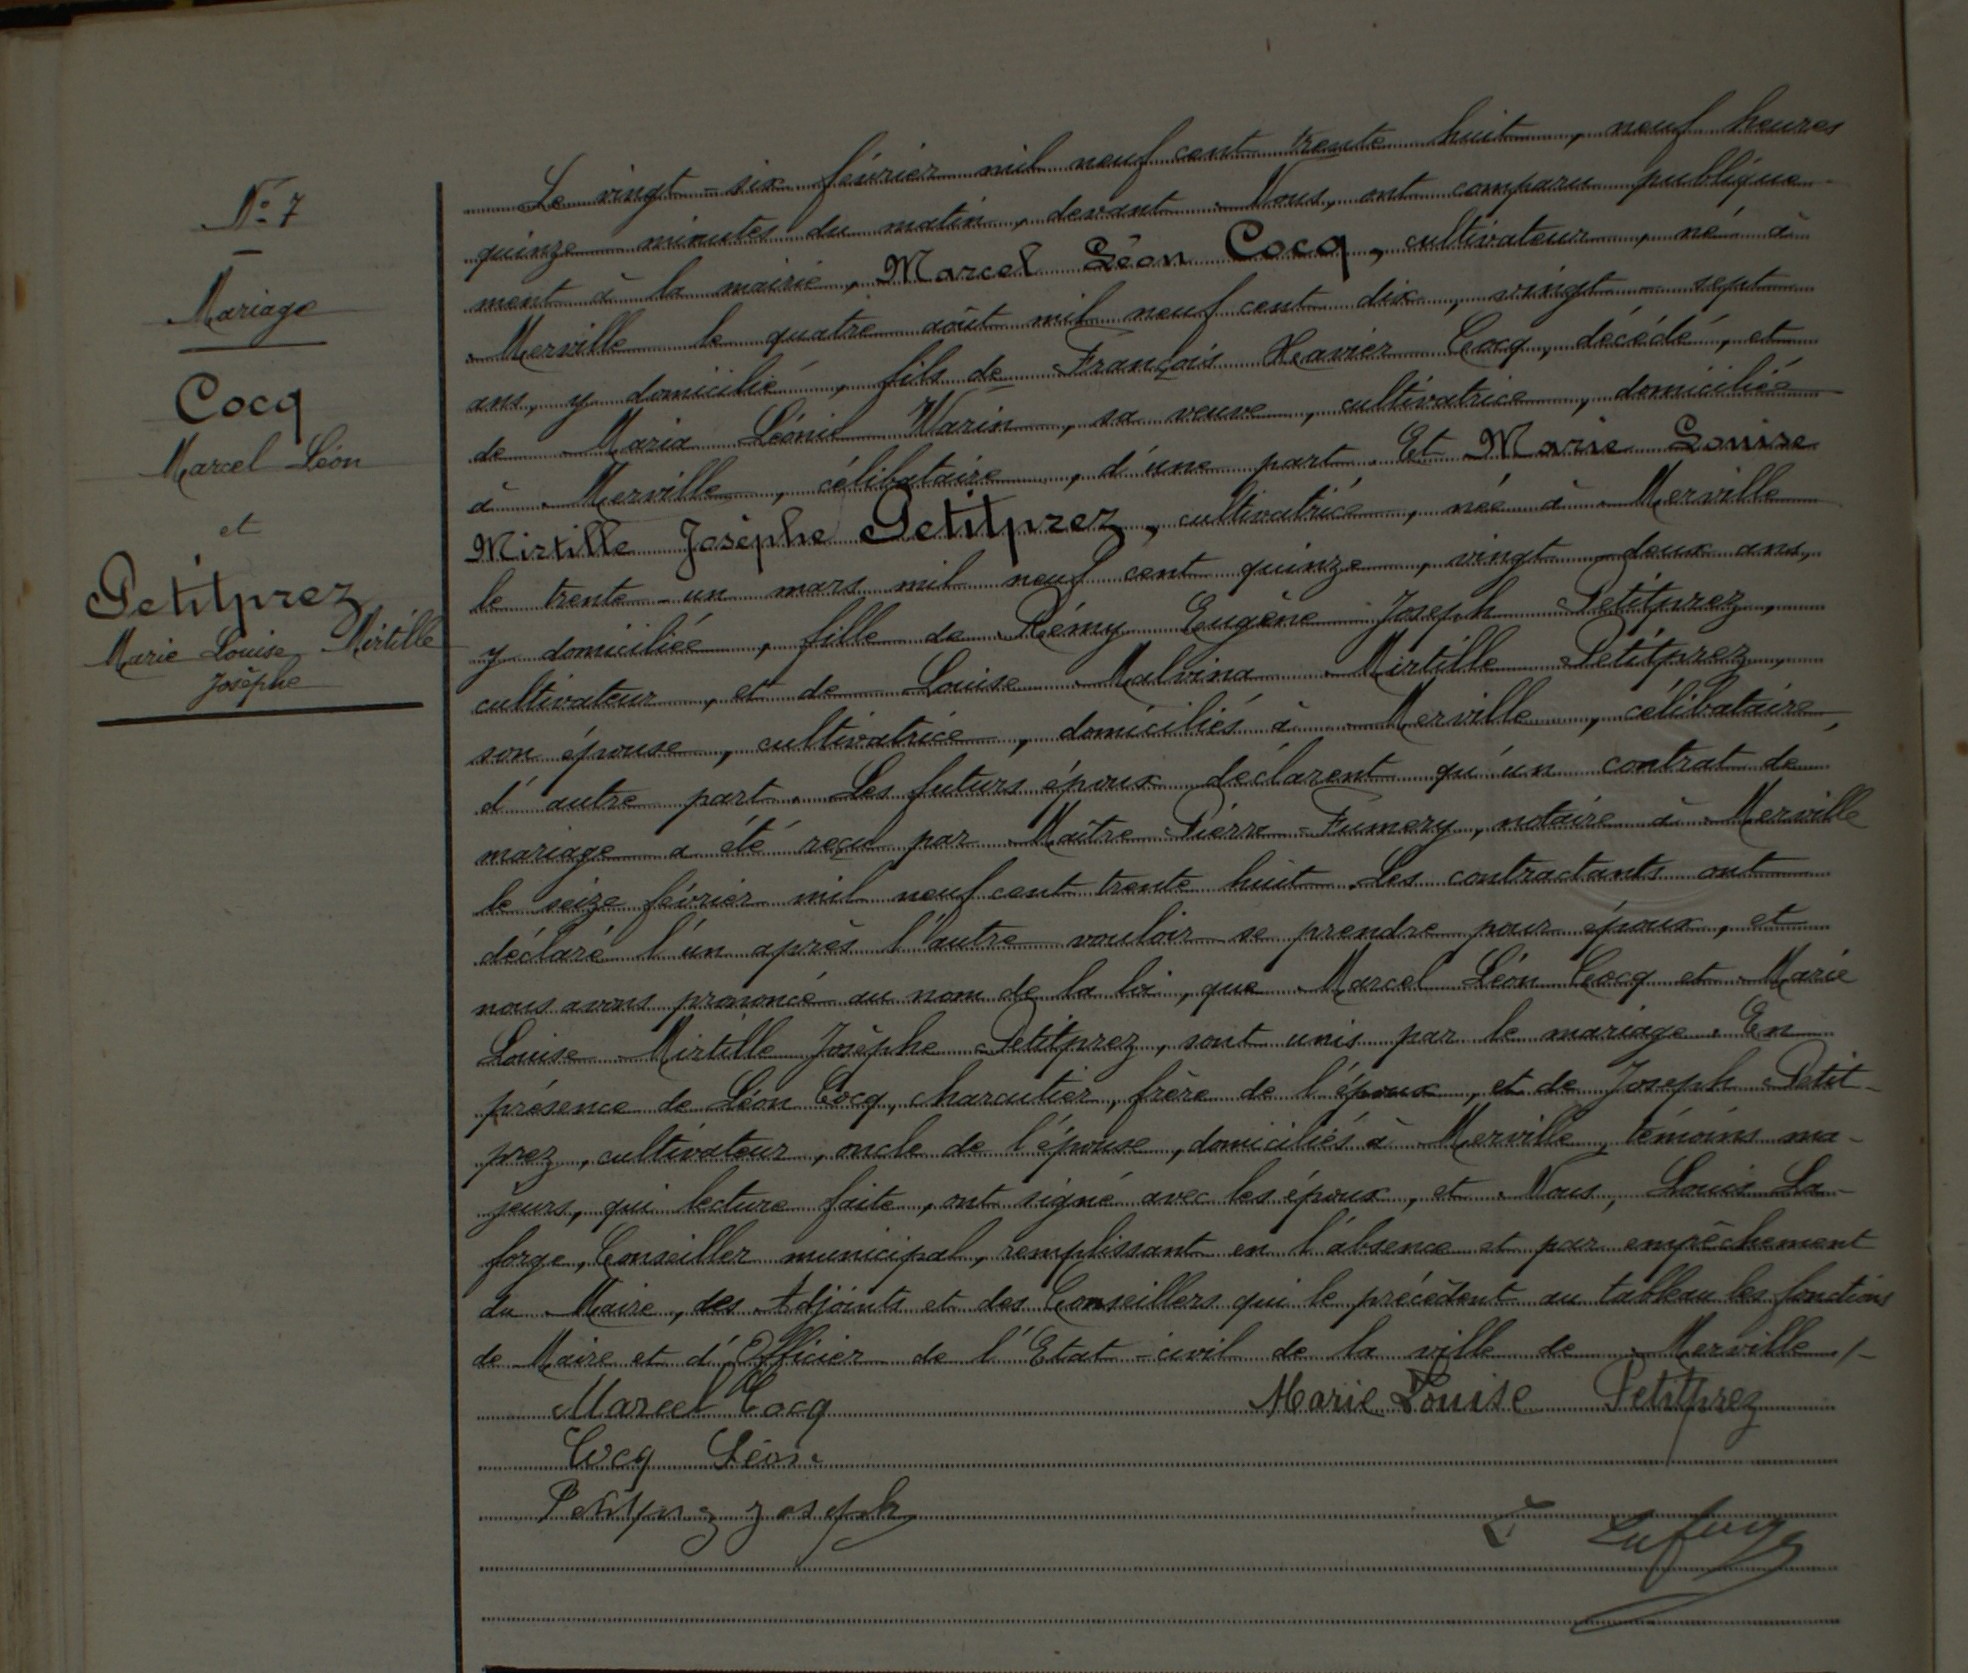 N° 7
Mariage
Cocq
Marcel Léon
et
Petitprez
Marie Louise Mirtille
Josèphe
Le vingt-six février mil neuf cent trente huit, neuf heures
quinze minutes du matin, devant Nous, ont comparu publique-
ment à la mairie, Marcel Léon Cocq, cultivateur, né à
Merville le quatre août mil neuf cent dix, vingt-sept
ans, y domicilié, fils de François Xavier Cocq, décédé, et
de Maria Léonie Warin, sa veuve, cultivatrice, domiciliée
à Merville, célibataire, d'une part. Et Marie Louise
Mirtille Josèphe Petitprez, cultivatrice, née à Merville
le trente-un mars mil neuf cent quinze, vingt-deux ans,
y domiciliée, fille de Rémy Eugène Joseph Petitprez,
cultivateur, et de Louise Malvina Mirtille Petitprez,
son épouse, cultivatrice, domiciliés à Merville, célibataire,
d'autre part. Les futurs époux déclarent qu'un contrat de
mariage a été reçu par Maître Pierre Fumery, notaire à Merville
le seize février mil neuf cent trente huit. Les contractants ont
déclaré l'un après l'autre vouloir se prendre pour époux, et
nous avons prononcé au nom de la loi, que Marcel Léon Cocq et Marie
Louise Mirtille Josèphe Petitprez, sont unis par le mariage. En
présence de Léon Cocq, charcutier, frère de l'époux, et de Joseph Petit-
prez, cultivateur, oncle de l'épouse, domiciliés à Merville, témoins ma-
jeurs, qui lecture faite, ont signé avec les époux, et Nous, Louis La-
forge, Conseiller municipal, remplissant en l'absence et par empêchement
du Maire, des Adjoints et des Conseillers qui le précèdent au tableau les fonctions
de Maire et d'Officier de l'Etat-civil de la ville de Merville./-
Marcel Cocq Marie Louise Petitprez
Cocq Léon
Petitprez Joseph
L Laforge